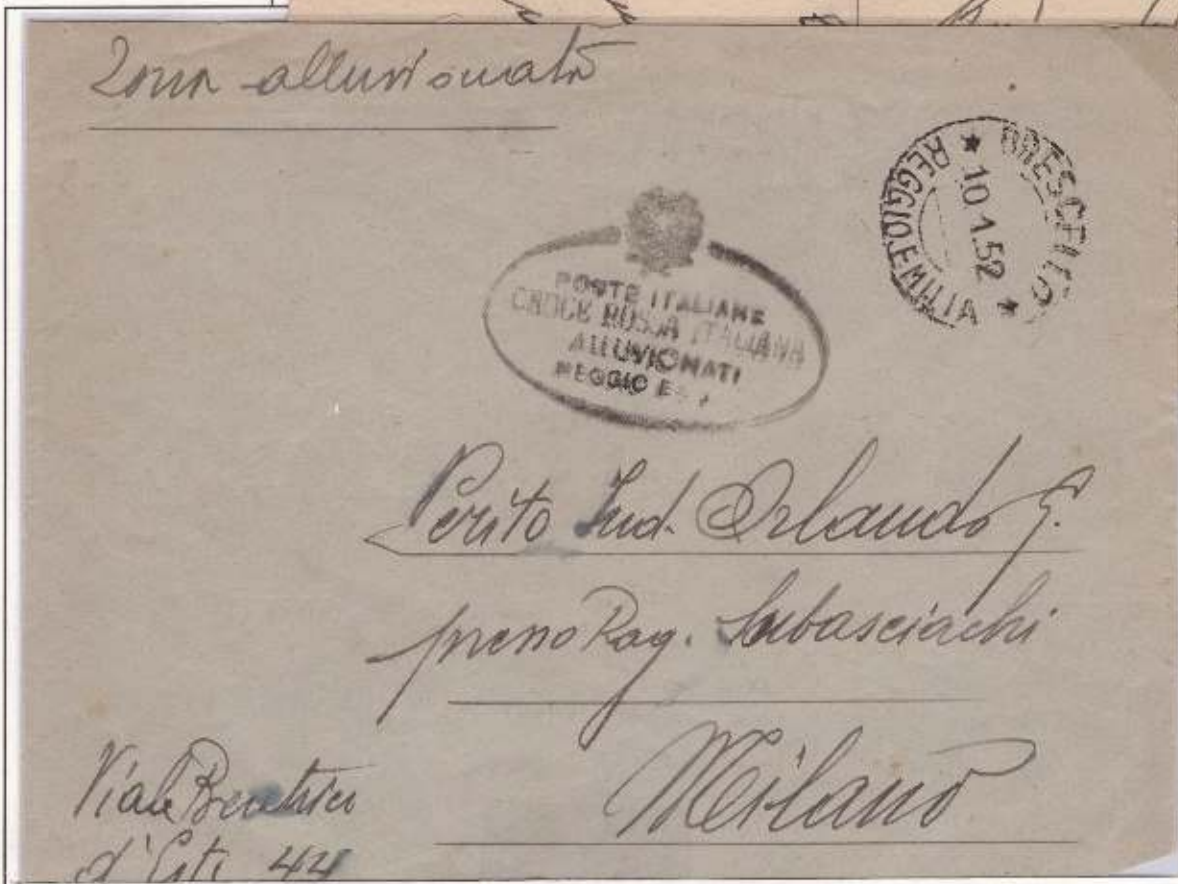 Zona alluvionata
BRESCELLO
★ 10.1.52 ★
REGGIO EMILIA
POSTE ITALIANE
CROCE ROSSA ITALIANA
ALLUVIONATI
REGGIO E
Perito Ind. Orlando G.
presso Rag.
Milano
Viale Beatrice
d'Este 44